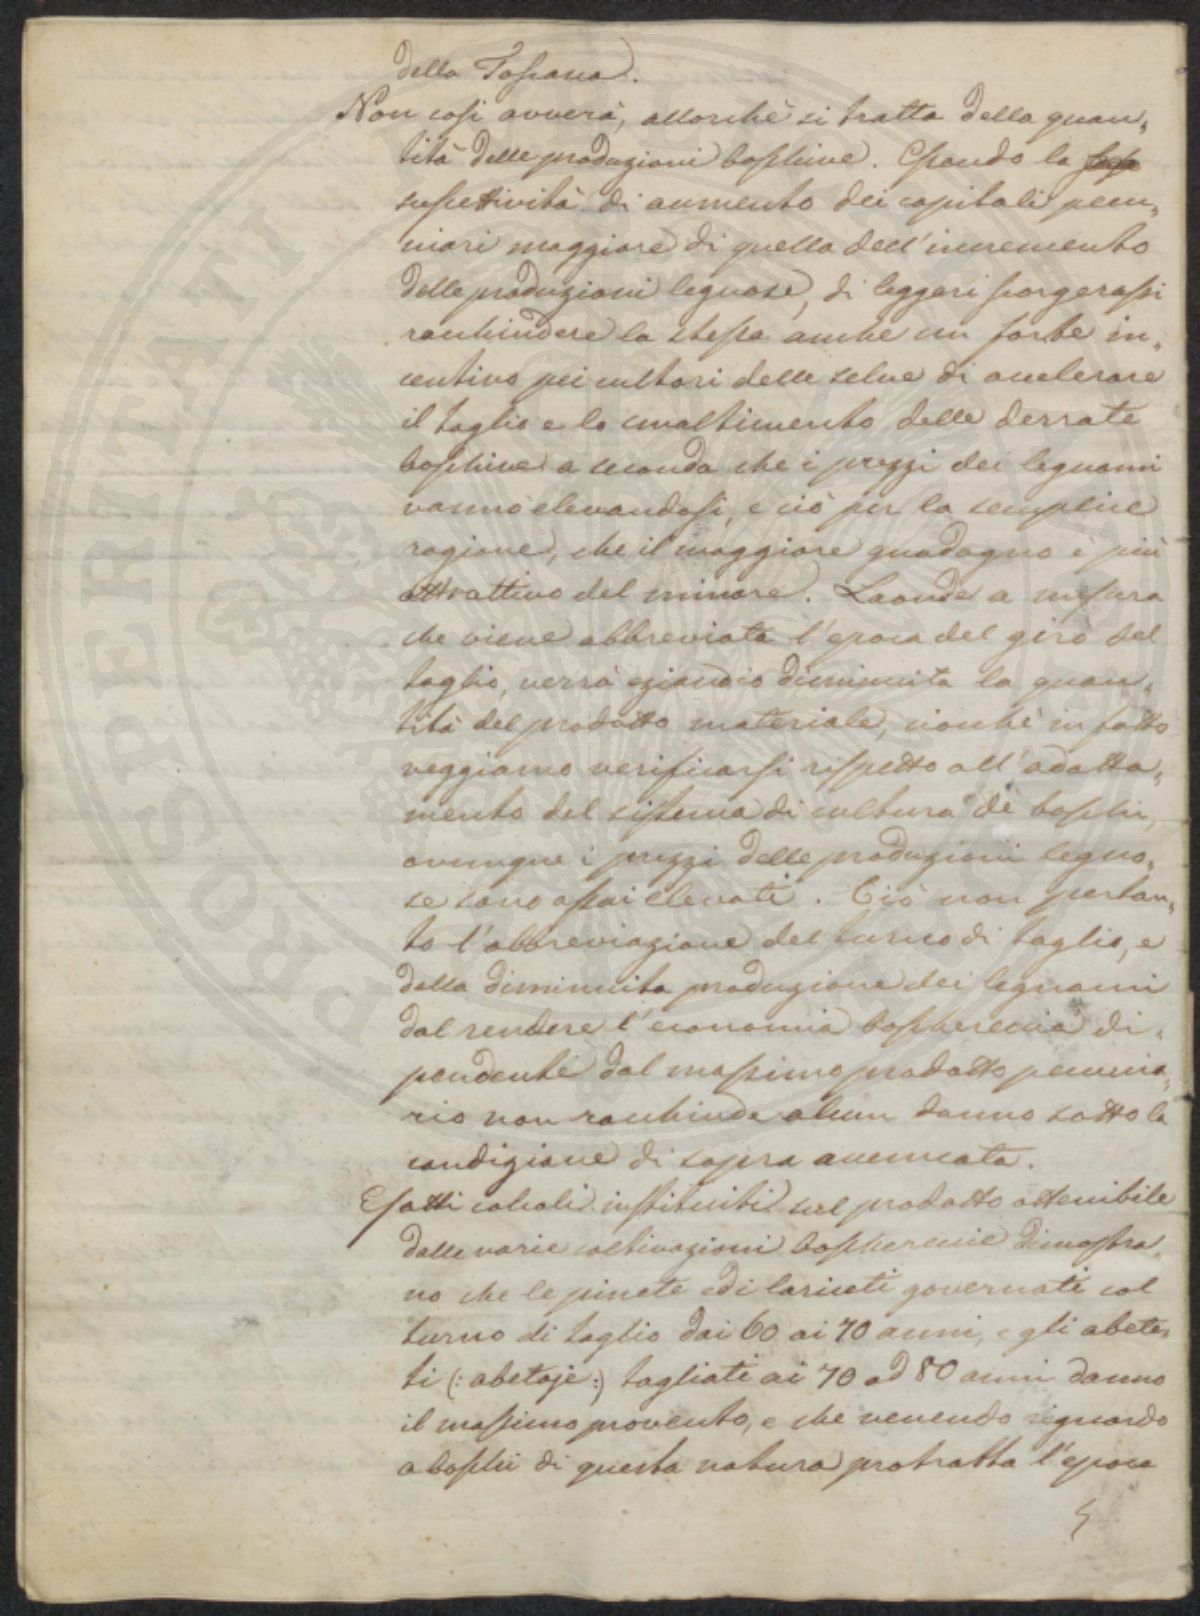 della Toscana.
Non così avverrà, allorchè si tratta della quan„
tità delle produzioni boschive. Essendo la
suscettività di aumento dei capitali pecu„
niari maggiore di quella dell'incremento
delle produzioni legnose, di leggeri scorgerassi
racchiudere la stessa anche un forte in„
centivo pei cultori delle selve di accelerare
il taglio e lo smaltimento delle derrate
boschive a seconda che i prezzi dei legnami
vanno elevandosi, e ciò per la semplice
ragione, che il maggiore guadagno è più
attrattivo del minore. Laonde a misura
che viene abbreviata l'epoca del giro del
taglio, verrà eziandio diminuita la quan„
tità del prodotto materiale, cionchè in fatto
veggiamo verificarsi rispetto all'adatta„
mento del sistema di cultura de' boschi,
ovunque i prezzi delle produzioni legno„
se sono assai elevati. Ciò non pertan„
to l'abbreviazione del turno di taglio, e
della diminuita produzione dei legnami
dal rendere l'economia boschereccia di„
pendente dal massimo prodotto pecunia„
rio non racchiude alcun danno sotto la
condizione di sopra accennata.
Esatti calcoli instituiti sul prodotto ottenibile
dalle varie coltivazioni boscherecie dimostra„
no che le pinete ed i lariceti governati col
turno di taglio dai 60 ai 70 anni, e gli abete„
ti (: abetaje :) tagliati ai 70 ad 80 anni danno
il massimo provento, e che venendo riguardo
a boschi di questa natura protratta l'epoca
PROSPERITATI